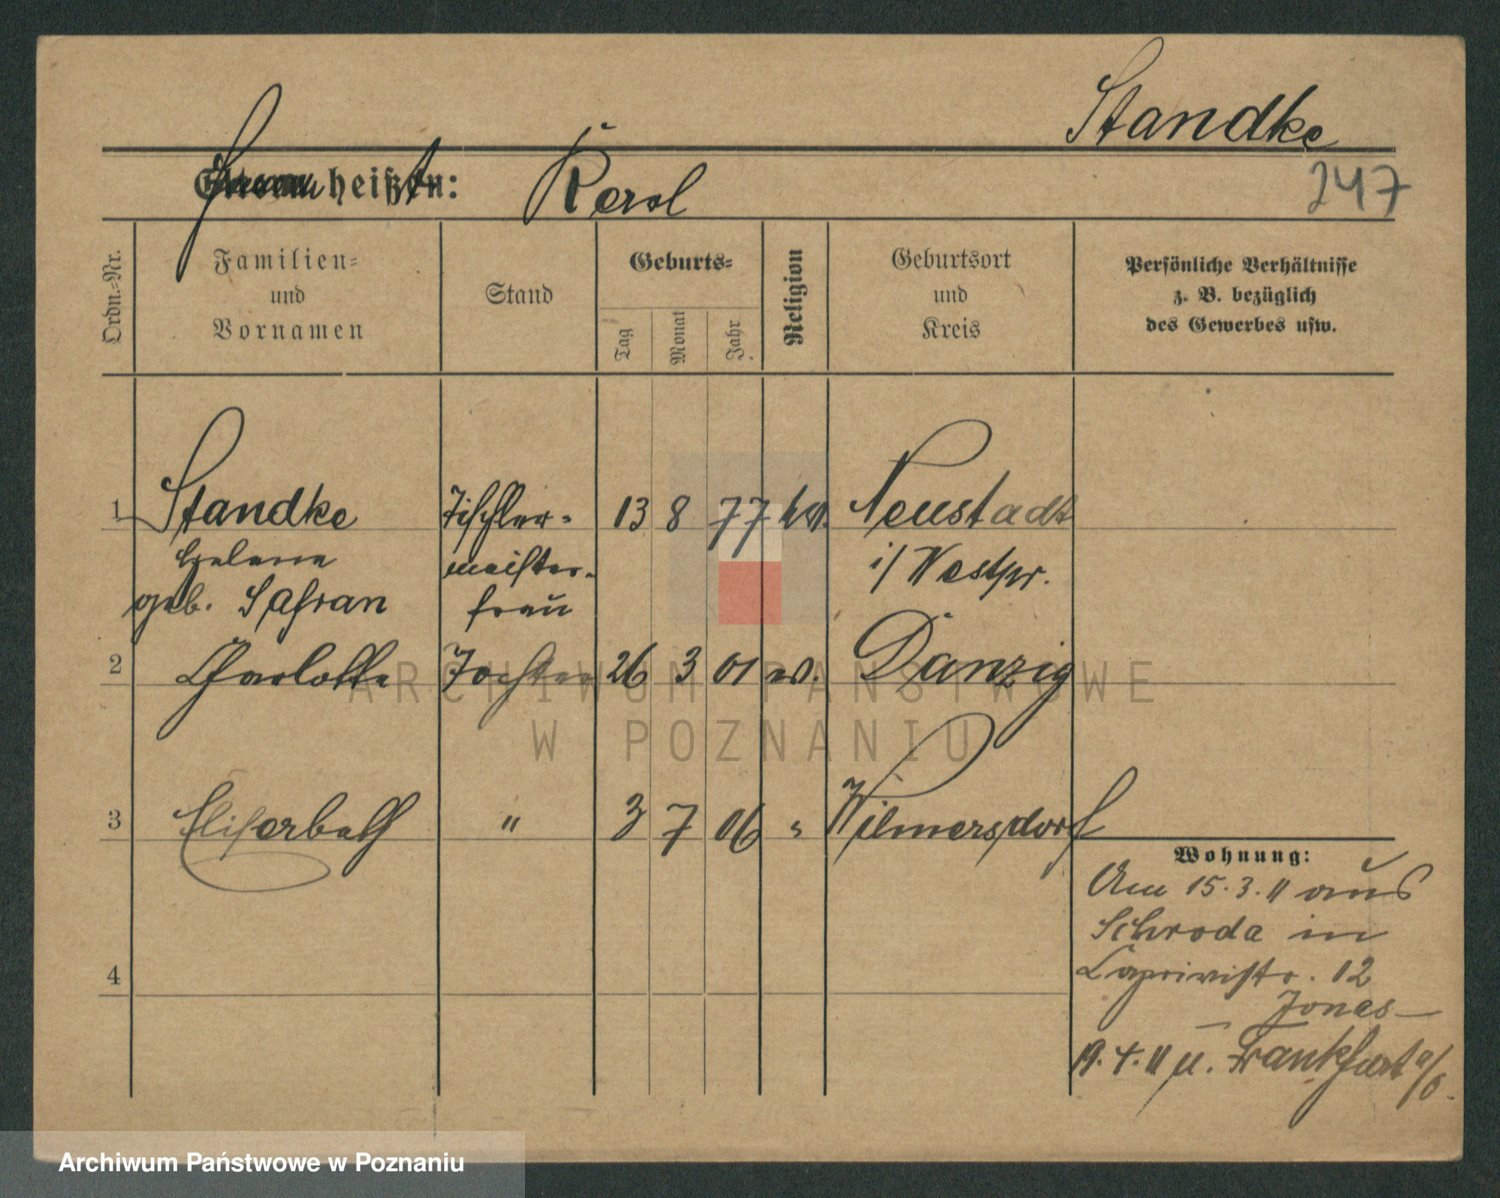 Standke
heißt: Karl
247
Ordn.-Nr.
Familien-
und
Vornamen
Stand
Geburts-
Tag
Monat
Jahr
Religion
Geburtsort
und
Kreis
Persönliche Verhältnisse
z. B. bezüglich
des Gewerbes usw.
1 Standke Tischler- 13 8 77 Neustadt
Helene meister- i/ Westpr.
geb. Safran frau
2 Charlotte Tochter 26 3 01 ev. Danzig
3 Elisabeth " 3 7 06 " Wilmersdorf
4
Wohnung:
Am 15.3.11 aus
Schroda in
Caprivistr. 12
Jonas
19.4.11 n. Frankfurt a/O.
ARCHIWUM PAŃSTWOWE
W POZNANIU
Archiwum Państwowe w Poznaniu